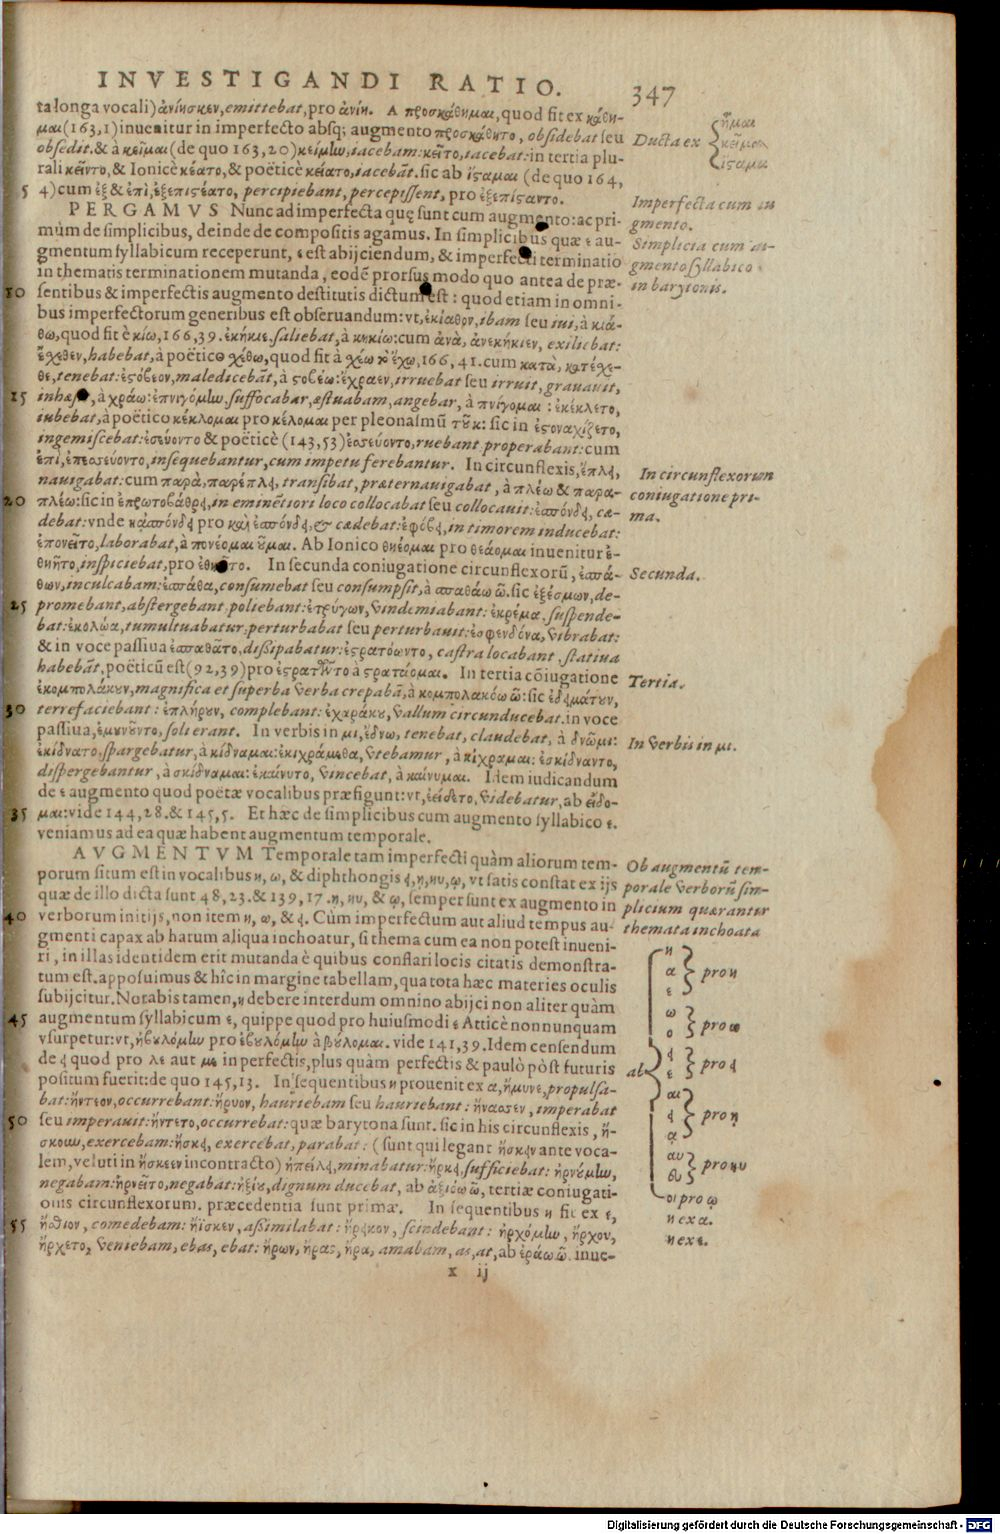 INVESTIGANDI RATIO. 347
ta longa vocali) ἀνίησκεν, emittebat, pro ἀνίη. A προσκάθημαι, quod fit ex κάθη-
μαι (163,1) inuenitur in imperfecto absq; augmento προσκάθητο, obsidebat seu
obsedit. & à κεῖμαι (de quo 163,20) κείμην, iacebam: κεῖτο, iacebat: in tertia plu-
rali κεῖντο, & Ionicè κέατο, & poëticè κείατο, iacebāt. sic ab ἵσταμαι (de quo 164,
5 4) cum ἐξ & ἐπὶ, ἐξεπιστέατο, percipiebant, percepissent, pro ἐξεπίσταντο.
PERGAMVS Nunc ad imperfecta quę sunt cum augmento: ac pri-
mùm de simplicibus, deinde de compositis agamus. In simplicibus quæ ε au-
gmentum syllabicum receperunt, ε est abijciendum, & imperfecti terminatio
in thematis terminationem mutanda, eodē prorsus modo quo antea de præ-
10 sentibus & imperfectis augmento destitutis dictum est: quod etiam in omni-
bus imperfectorum generibus est obseruandum: vt, ἐκίαθον, ibam seu iui, à κιά-
θω, quod fit è κίω, 166,39. ἐκήκιε, saliebat, à κηκίω: cum ἀνὰ, ἀνεκήκιεν, exiliebat:
ἔχεθεν, habebat, à poëtico χέθω, quod fit à χέω τὸ ἔχω, 166,41. cum κατὰ, κατέχε-
θε, tenebat: ἐστόβεον, maledicebāt, à στοβέω: ἐχραεν, irruebat seu irruit, grauauit,
15 à χράω: ἐπνιγόμην, suffocabar, æstuabam, angebar, à πνίγομαι: ἐκέκλετο,
iubebat, à poëtico κέκλομαι pro κέλομαι per pleonasmū τοῦ κ: sic in ἐστοναχίζετο,
ingemiscebat: ἐσεύοντο & poëticè (143,53) ἐσσεύοντο, ruebant, properabant: cum
ἐπὶ, ἐπεσσεύοντο, insequebantur, cum impetu ferebantur. In circunflexis, ἔπλει,
nauigabat: cum παρὰ, παρέπλει, transibat, præternauigabat, à πλέω & παρα-
20 πλέω: sic in ἐπρωτοβάθρει, in eminētiori loco collocabat seu collocauit: ἐσπόνδει, cæ-
debat: vnde κἀσπόνδει pro καὶ ἐσπόνδει, & cædebat: ἐφόβει, in timorem inducebat:
ἐπονεῖτο, laborabat, à πονέομαι οῦμαι. Ab Ionico θηέομαι pro θεάομαι inuenitur ἐ-
θηῆτο, inspiciebat, pro ἐθηεῖτο. In secunda coniugatione circunflexorū, ἐσπά-
θων, inculcabam: ἐσπάθα, consumebat seu consumpsit, à σπαθάω ῶ. sic ἐξέσμων, de-
25 promebant, abstergebant, poliebant: ἐτρύγων, vindemiabant: ἐκρέμα, suspende-
bat: ἐκολῴα, tumultuabatur, perturbabat seu perturbauit: ἐσφενδόνα, vibrabat:
& in voce passiua ἐσπαθᾶτο, dißipabatur: ἐστρατόωντο, castra locabant, statiua
habebāt, poëticū est (92,39) pro ἐστρατῶντο à στρατάομαι. In tertia cōiugatione
ἐκομπολάκουν, magnifica et superba verba crepabā, à κομπολακόω ῶ: sic ἐδειμάτουν,
30 terrefaciebant: ἐπλήρουν, complebant: ἐχαράκου, vallum circunducebat. in voce
passiua, ἐμυνοῦντο, soliti erant. In verbis in μι, ἔδνω, tenebat, claudebat, à δνῶμι:
ἐκίδνατο, spargebatur, à κίδναμαι: ἐκιχράμεθα, vtebamur, à κίχραμαι: ἐσκίδναντο,
dispergebantur, à σκίδναμαι: ἐκαίνυτο, vincebat, à καίνυμαι. Idem iudicandum
de ε augmento quod poëtæ vocalibus præfigunt: vt, ἐείδετο, videbatur, ab εἴδο-
35 μαι: vide 144,28. & 145,5. Et hæc de simplicibus cum augmento syllabico ε.
veniamus ad ea quæ habent augmentum temporale.
AVGMENTVM Temporale tam imperfecti quàm aliorum tem-
porum situm est in vocalibus η, ω, & diphthongis ει, ῃ, ηυ, ῳ, vt satis constat ex ijs
quæ de illo dicta sunt 48,23. & 139,17. ῃ, ηυ, & ῳ, semper sunt ex augmento in
40 verborum initijs, non item η, ω, & ει. Cùm imperfectum aut aliud tempus au-
gmenti capax ab harum aliqua inchoatur, si thema cum ea non potest inueni-
ri, in illas identidem erit mutanda è quibus conflari locis citatis demonstra-
tum est. apposuimus & hîc in margine tabellam, qua tota hæc materies oculis
subijcitur. Notabis tamen, η debere interdum omnino abijci non aliter quàm
45 augmentum syllabicum ε, quippe quod pro huiusmodi ε Atticè nonnunquam
vsurpetur: vt, ἠβουλόμην pro ἐβουλόμην à βούλομαι. vide 141,39. Idem censendum
de ει quod pro λε aut με in perfectis, plus quàm perfectis & paulò pòst futuris
positum fuerit: de quo 145,13. In sequentibus η prouenit ex α, ἤμυνε, propulsa-
bat: ἤντεον, occurrebant: ἤρυον, hauriebam seu hauriebant: ἤνασσεν, imperabat
50 seu imperauit: ἤντετο, occurrebat: quæ barytona sunt. sic in his circunflexis, ἤ-
σκουν, exercebam: ἤσκει, exercebat, parabat: (sunt qui legant ἤσκειν ante voca-
lem, veluti in ἤσκεεν incontracto) ἠπείλει, minabatur: ἤρκει, sufficiebat: ἠρνούμην,
negabam: ἠρνεῖτο, negabat: ἠξίου, dignum ducebat, ab ἀξιόω ῶ, tertiæ coniugati-
onis circunflexorum. præcedentia sunt primæ. In sequentibus η fit ex ε,
55 ἤσθιον, comedebam: ἤϊσκεν, aßimilabat: ἤρεικον, scindebant: ἠρχόμην, ἤρχον,
ἤρχετο, veniebam, ebas, ebat: ἤρων, ἤρας, ἤρα, amabam, as, at, ab ἐράω ῶ. inue-
x ij
Ducta ex { ἧμαι
κεῖμαι
ἵσταμαι
Imperfecta cum au
gmento.
Simplicia cum au-
gmento syllabico
in barytonis.
In circunflexorum
coniugatione pri-
ma.
Secunda.
Tertia.
In verbis in μι.
Ob augmentū tem-
porale verborū sim-
plicium quærantur
themata inchoata
ab
η
α
ε } pro η
ω
ο } pro ω
ει
ε } pro ει
αι
ει
ᾳ } pro ῃ
αυ
ευ } pro ηυ
οι pro ῳ
η ex α.
η ex ε.
Digitalisierung gefördert durch die Deutsche Forschungsgemeinschaft - DFG